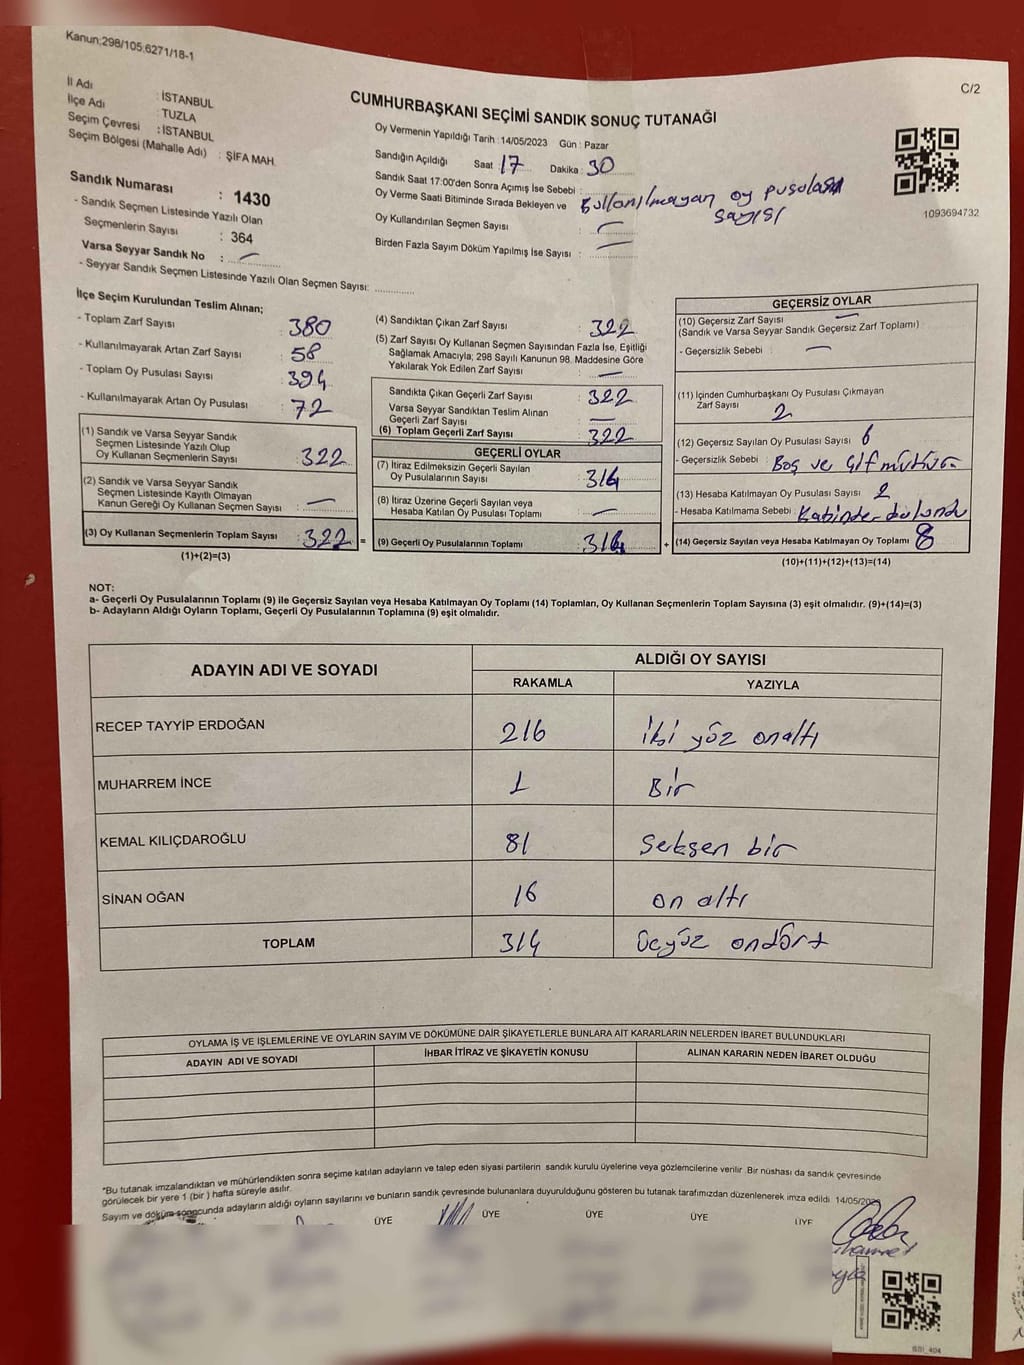 Kanun;298/105;6271/18-1
C/2
İl Adı : İSTANBUL
İlçe Adı : TUZLA
Seçim Çevresi : İSTANBUL
Seçim Bölgesi (Mahalle Adı) : ŞİFA MAH.
CUMHURBAŞKANI SEÇİMİ SANDIK SONUÇ TUTANAĞI
Oy Vermenin Yapıldığı Tarih : 14/05/2023 Gün : Pazar
Sandığın Açıldığı Saat : 17 Dakika : 30
Sandık Saat 17:00'den Sonra Açımış İse Sebebi :
Oy Verme Saati Bitiminde Sırada Bekleyen ve
Oy Kullandırılan Seçmen Sayısı : —
Birden Fazla Sayım Döküm Yapılmış İse Sayısı : —
Kullanılmayan oy pusulası
sayısı
1093694732
Sandık Numarası : 1430
- Sandık Seçmen Listesinde Yazılı Olan
Seçmenlerin Sayısı : 364
Varsa Seyyar Sandık No : —
- Seyyar Sandık Seçmen Listesinde Yazılı Olan Seçmen Sayısı:
İlçe Seçim Kurulundan Teslim Alınan;
- Toplam Zarf Sayısı : 380
- Kullanılmayarak Artan Zarf Sayısı : 58
- Toplam Oy Pusulası Sayısı : 394
- Kullanılmayarak Artan Oy Pusulası : 72
(1) Sandık ve Varsa Seyyar Sandık
Seçmen Listesinde Yazılı Olup
Oy Kullanan Seçmenlerin Sayısı : 322
(2) Sandık ve Varsa Seyyar Sandık
Seçmen Listesinde Kayıtlı Olmayan
Kanun Gereği Oy Kullanan Seçmen Sayısı : —
(3) Oy Kullanan Seçmenlerin Toplam Sayısı : 322 =
(1)+(2)=(3)
(4) Sandıktan Çıkan Zarf Sayısı : 322
(5) Zarf Sayısı Oy Kullanan Seçmen Sayısından Fazla İse, Eşitliği
Sağlamak Amacıyla; 298 Sayılı Kanunun 98. Maddesine Göre
Yakılarak Yok Edilen Zarf Sayısı : —
Sandıkta Çıkan Geçerli Zarf Sayısı : 322
Varsa Seyyar Sandıktan Teslim Alınan
Geçerli Zarf Sayısı : —
(6) Toplam Geçerli Zarf Sayısı : 322
GEÇERLİ OYLAR
(7) İtiraz Edilmeksizin Geçerli Sayılan
Oy Pusulalarının Sayısı : 314
(8) İtiraz Üzerine Geçerli Sayılan veya
Hesaba Katılan Oy Pusulası Toplamı : —
(9) Geçerli Oy Pusulalarının Toplamı : 314 +
GEÇERSİZ OYLAR
(10) Geçersiz Zarf Sayısı : —
(Sandık ve Varsa Seyyar Sandık Geçersiz Zarf Toplamı)
- Geçersizlik Sebebi : —
(11) İçinden Cumhurbaşkanı Oy Pusulası Çıkmayan
Zarf Sayısı : 2
(12) Geçersiz Sayılan Oy Pusulası Sayısı : 6
- Geçersizlik Sebebi : Boş ve çift mühür
(13) Hesaba Katılmayan Oy Pusulası Sayısı : 2
- Hesaba Katılmama Sebebi : Kabinde bulundu
(14) Geçersiz Sayılan veya Hesaba Katılmayan Oy Toplamı : 8
(10)+(11)+(12)+(13)=(14)
NOT:
a- Geçerli Oy Pusulalarının Toplamı (9) ile Geçersiz Sayılan veya Hesaba Katılmayan Oy Toplamı (14) Toplamları, Oy Kullanan Seçmenlerin Toplam Sayısına (3) eşit olmalıdır. (9)+(14)=(3)
b- Adayların Aldığı Oyların Toplamı, Geçerli Oy Pusulalarının Toplamına (9) eşit olmalıdır.
ADAYIN ADI VE SOYADI ALDIĞI OY SAYISI
RAKAMLA YAZIYLA
RECEP TAYYİP ERDOĞAN 216 iki yüz onaltı
MUHARREM İNCE 1 Bir
KEMAL KILIÇDAROĞLU 81 Seksen bir
SİNAN OĞAN 16 on altı
TOPLAM 314 Üçyüz ondört
OYLAMA İŞ VE İŞLEMLERİNE VE OYLARIN SAYIM VE DÖKÜMÜNE DAİR ŞİKAYETLERLE BUNLARA AİT KARARLARIN NELERDEN İBARET BULUNDUKLARI
ADAYIN ADI VE SOYADI İHBAR İTİRAZ VE ŞİKAYETİN KONUSU ALINAN KARARIN NEDEN İBARET OLDUĞU
*Bu tutanak imzalandıktan ve mühürlendikten sonra seçime katılan adayların ve talep eden siyasi partilerin sandık kurulu üyelerine veya gözlemcilerine verilir. Bir nüshası da sandık çevresinde
görülecek bir yere 1 (bir ) hafta süreyle asılır.
Sayım ve döküm sonucunda adayların aldığı oyların sayılarını ve bunların sandık çevresinde bulunanlara duyurulduğunu gösteren bu tutanak tarafımızdan düzenlenerek imza edildi 14/05/2023
ÜYE ÜYE ÜYE ÜYE ÜYE